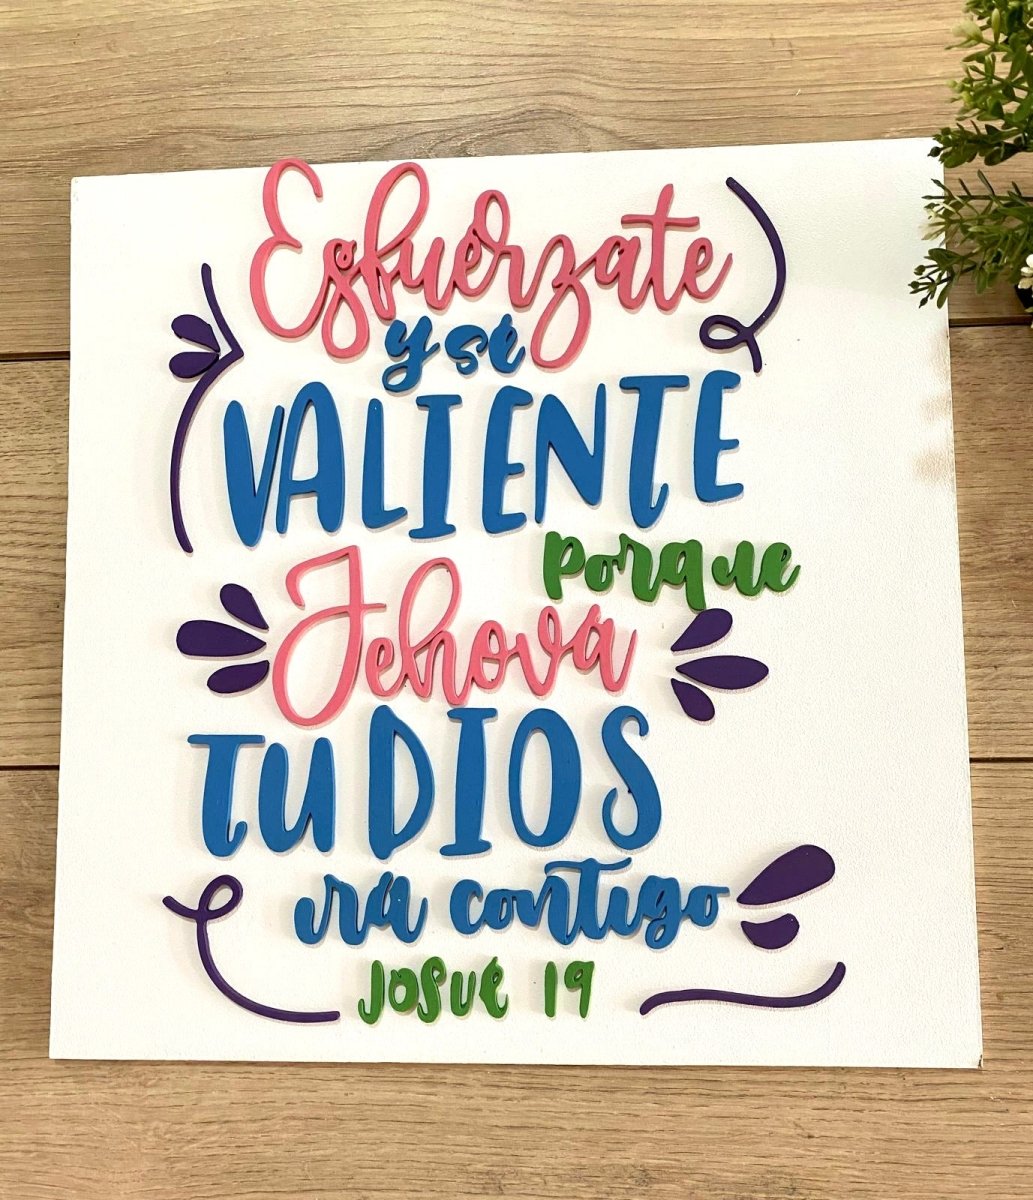 Esfuerzate
y sé
VALIENTE
porque
Jehova
TU DIOS
ira contigo
JOSUÉ 19